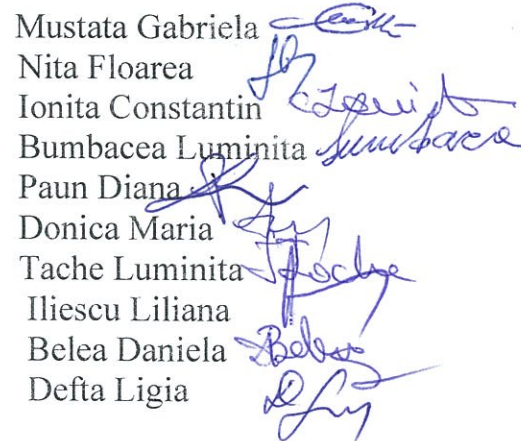 Mustata Gabriela
Nita Floarea
Ionita Constantin
Bumbacea Luminita
Paun Diana
Donica Maria
Tache Luminita
Iliescu Liliana
Belea Daniela
Defta Ligia